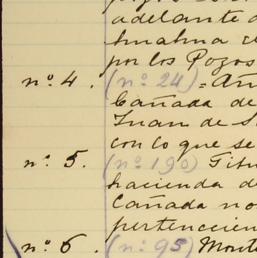 adelante
por los Pozos
nº 4. (nº 24) = Añ
Cañada de
Juan de S
con lo que se
nº 5. (nº 190) Títu
hacienda de
Cañada no
pertenecien
nº 6 (nº 95) Mont